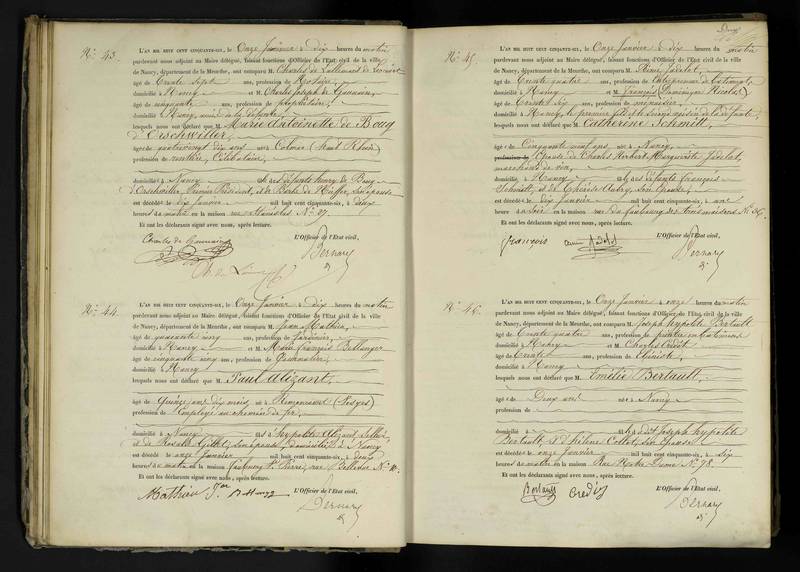 No. 43.
L'AN MIL HUIT CENT CINQUANTE-SIX, le Onze Janvier à dix heures du matin
pardevant nous adjoint au Maire délégué, faisant fonctions d'Officier de l'Etat civil de la ville
de Nancy, département de la Meurthe, ont comparu M. Charles de
âgé de trente sept ans, profession de Notaire,
domicilié à Nancy et M. Charles Joseph de Gounain,
âgé de cinquante ans, profession de propriétaire,
domicilié à Nancy, de la défunte,
lesquels nous ont déclaré que M. Marie Antoinette de Boug
d'Orschwiller,
âgée de quatrevingt dix ans née à Colmar (haut Rhin)
profession de rentière, Célibataire,
domiciliée à Nancy fille des défunts henry de Boug
d'Orschwiller, Premier Président, et de son épouse
est décédée le dix Janvier mil huit cent cinquante-six, à deux
heures du matin en la maison rue No. 27.
Et ont les déclarants signé avec nous, après lecture.
Charles de Gounain
L'Officier de l'Etat civil,
Bernard
No. 44.
L'AN MIL HUIT CENT CINQUANTE-SIX, le Onze Janvier à dix heures du matin
pardevant nous adjoint au Maire délégué, faisant fonctions d'Officier de l'Etat civil de la ville
de Nancy, département de la Meurthe, ont comparu M. Jean Mathieu,
âgé de quarante cinq ans, profession de Jardinier,
domicilié à Nancy et M. Marie françois Bellanger
âgé de cinquante cinq ans, profession de Journalier,
domicilié à Nancy
lesquels nous ont déclaré que M. Paul Alizant,
âgé de Quinze ans dix mois, né à Remoncourt (Vosges)
profession de Employé au chemin de fer,
domicilié à Nancy fils d'hypolite Alizant, Sellier,
et de Rosalie son épouse, domiciliés à Nancy
est décédé le onze Janvier mil huit cent cinquante-six, à deux
heures du matin en la maison faubourg St. Pierre, rue Bellevue No.
Et ont les déclarants signé avec nous, après lecture.
Mathieu Jean
L'Officier de l'Etat civil,
Bernard
No. 45.
L'AN MIL HUIT CENT CINQUANTE-SIX, le Onze Janvier à dix heures du matin
pardevant nous adjoint au Maire délégué, faisant fonctions d'Officier de l'Etat civil de la ville
de Nancy, département de la Meurthe, ont comparu M. Rémi Jadelot,
âgé de trente quatre ans, profession de entrepreneur de bâtiments
domicilié à Nancy et M. François (Dominique Nicolas)
âgé de trente six ans, profession de menuisier,
domicilié à Nancy, le premier fils et le second voisin de la défunte,
lesquels nous ont déclaré que M. Catherine Schmitt,
âgée de Cinquante neuf ans, née à Nancy,
profession de Epouse de Charles Norbert Marguerite Jadelot,
marchand de vin,
domiciliée à Nancy fille des défunts françois
Schmitt, et de Thérèse son épouse,
est décédée le dix Janvier mil huit cent cinquante-six, à une
heure du soir en la maison rue du faubourg des trois maisons No. 36.
Et ont les déclarants signé avec nous, après lecture.
françois Jadelot
L'Officier de l'Etat civil,
Bernard
No. 46.
L'AN MIL HUIT CENT CINQUANTE-SIX, le Onze Janvier à onze heures du matin
pardevant nous adjoint au Maire délégué, faisant fonctions d'Officier de l'Etat civil de la ville
de Nancy, département de la Meurthe, ont comparu M. Joseph hypolite Bertault
âgé de trente quatre ans, profession de peintre en bâtiment
domicilié à Nancy et M. Charles Crédot
âgé de trente ans, profession de Ebéniste,
domicilié à Nancy
lesquels nous ont déclaré que M. Emélie Bertault,
âgée de Deux ans née à Nancy
profession de
domiciliée à fille de Joseph hypolite
Bertault, et d'hélène Collot, son épouse
est décédée le onze Janvier mil huit cent cinquante-six, à six
heures du matin en la maison Rue Notre Dame No. 78.
Et ont les déclarants signé avec nous, après lecture.
Bertault
L'Officier de l'Etat civil,
Bernard